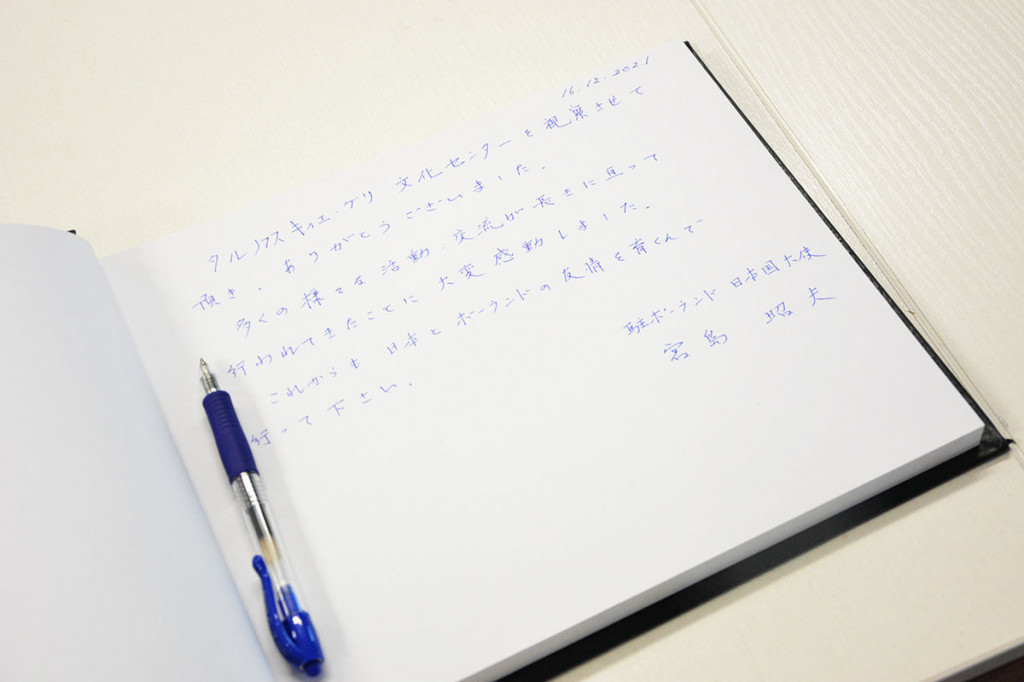 16.12.2021
タルノフスキィエ・グリ 文化センターを視察させて
頂き、ありがとうございました。
多くの様々な活動・交流が長きに亘って
行われてきたことに大変感動しました。
これからも日本とポーランドの友情を育くんで
行って下さい。
駐ポーランド日本国大使
宮島 昭夫